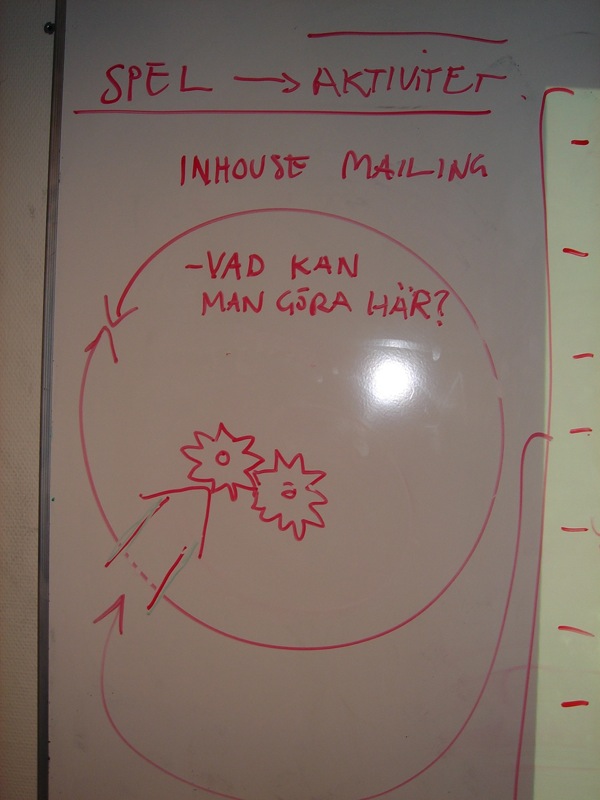 SPEL → AKTIVITET
INHOUSE MAILING
-VAD KAN
MAN GÖRA HÄR?